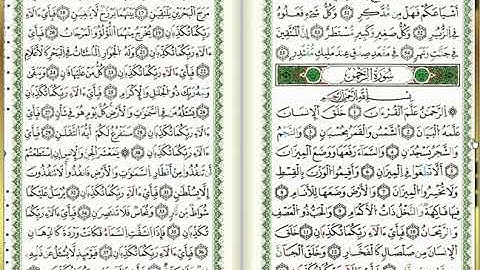 أَشْيَاعَكُمْ فَهَلْ مِن مُّدَّكِرٍ ٥١ وَكُلُّ شَىْءٍ فَعَلُوهُ
فِى ٱلزُّبُرِ ٥٢ وَكُلُّ صَغِيرٍ وَكَبِيرٍ مُّسْتَطَرٌ ٥٣ إِنَّ ٱلْمُتَّقِينَ
فِى جَنَّٰتٍ وَنَهَرٍ ٥٤ فِى مَقْعَدِ صِدْقٍ عِندَ مَلِيكٍ مُّقْتَدِرٍ ٥٥
سُورَةُ الرَّحْمَٰن
بِسْمِ ٱللَّهِ ٱلرَّحْمَٰنِ ٱلرَّحِيمِ
ٱلرَّحْمَٰنُ ١ عَلَّمَ ٱلْقُرْءَانَ ٢ خَلَقَ ٱلْإِنسَٰنَ ٣
عَلَّمَهُ ٱلْبَيَانَ ٤ ٱلشَّمْسُ وَٱلْقَمَرُ بِحُسْبَانٍ ٥ وَٱلنَّجْمُ
وَٱلشَّجَرُ يَسْجُدَانِ ٦ وَٱلسَّمَآءَ رَفَعَهَا وَوَضَعَ ٱلْمِيزَانَ
٧ أَلَّا تَطْغَوْا۟ فِى ٱلْمِيزَانِ ٨ وَأَقِيمُوا۟ ٱلْوَزْنَ بِٱلْقِسْطِ
وَلَا تُخْسِرُوا۟ ٱلْمِيزَانَ ٩ وَٱلْأَرْضَ وَضَعَهَا لِلْأَنَامِ ١٠
فِيهَا فَٰكِهَةٌ وَٱلنَّخْلُ ذَاتُ ٱلْأَكْمَامِ ١١ وَٱلْحَبُّ ذُو ٱلْعَصْفِ
وَٱلرَّيْحَانُ ١٢ فَبِأَىِّ ءَالَآءِ رَبِّكُمَا تُكَذِّبَانِ ١٣ خَلَقَ
ٱلْإِنسَٰنَ مِن صَلْصَٰلٍ كَٱلْفَخَّارِ ١٤ وَخَلَقَ ٱلْجَآنَّ
مَرَجَ ٱلْبَحْرَيْنِ يَلْتَقِيَانِ ١٩ بَيْنَهُمَا بَرْزَخٌ لَّا يَبْغِيَانِ ٢٠ فَبِأَىِّ
ءَالَآءِ رَبِّكُمَا تُكَذِّبَانِ ٢١ يَخْرُجُ مِنْهُمَا ٱللُّؤْلُؤُ وَٱلْمَرْجَانُ
٢٢ فَبِأَىِّ ءَالَآءِ رَبِّكُمَا تُكَذِّبَانِ ٢٣ وَلَهُ ٱلْجَوَارِ ٱلْمُنشَـَٔاتُ فِى ٱلْبَحْرِ كَٱلْأَعْلَٰمِ
٢٤ فَبِأَىِّ ءَالَآءِ رَبِّكُمَا تُكَذِّبَانِ ٢٥ كُلُّ مَنْ عَلَيْهَا فَانٍ ٢٦ وَيَبْقَىٰ
وَجْهُ رَبِّكَ ذُو ٱلْجَلَٰلِ وَٱلْإِكْرَامِ ٢٧ فَبِأَىِّ ءَالَآءِ رَبِّكُمَا تُكَذِّبَانِ
٢٨ يَسْـَٔلُهُ مَن فِى ٱلسَّمَٰوَٰتِ وَٱلْأَرْضِ كُلَّ يَوْمٍ هُوَ فِى شَأْنٍ ٢٩ فَبِأَىِّ
ءَالَآءِ رَبِّكُمَا تُكَذِّبَانِ ٣٠ سَنَفْرُغُ لَكُمْ أَيُّهَ ٱلثَّقَلَانِ ٣١ فَبِأَىِّ ءَالَآءِ
رَبِّكُمَا تُكَذِّبَانِ ٣٢ يَٰمَعْشَرَ ٱلْجِنِّ وَٱلْإِنسِ إِنِ ٱسْتَطَعْتُمْ
أَن تَنفُذُوا۟ مِنْ أَقْطَارِ ٱلسَّمَٰوَٰتِ وَٱلْأَرْضِ فَٱنفُذُوا۟ لَا تَنفُذُونَ
إِلَّا بِسُلْطَٰنٍ ٣٣ فَبِأَىِّ ءَالَآءِ رَبِّكُمَا تُكَذِّبَانِ ٣٤ يُرْسَلُ عَلَيْكُمَا
شُوَاظٌ مِّن نَّارٍ وَنُحَاسٌ فَلَا تَنتَصِرَانِ ٣٥ فَبِأَىِّ ءَالَآءِ رَبِّكُمَا
تُكَذِّبَانِ ٣٦ فَإِذَا ٱنشَقَّتِ ٱلسَّمَآءُ فَكَانَتْ وَرْدَةً كَٱلدِّهَانِ
٣٧ فَبِأَىِّ ءَالَآءِ رَبِّكُمَا تُكَذِّبَانِ ٣٨ فَيَوْمَئِذٍ لَّا يُسْـَٔلُ عَن ذَنۢبِهِ